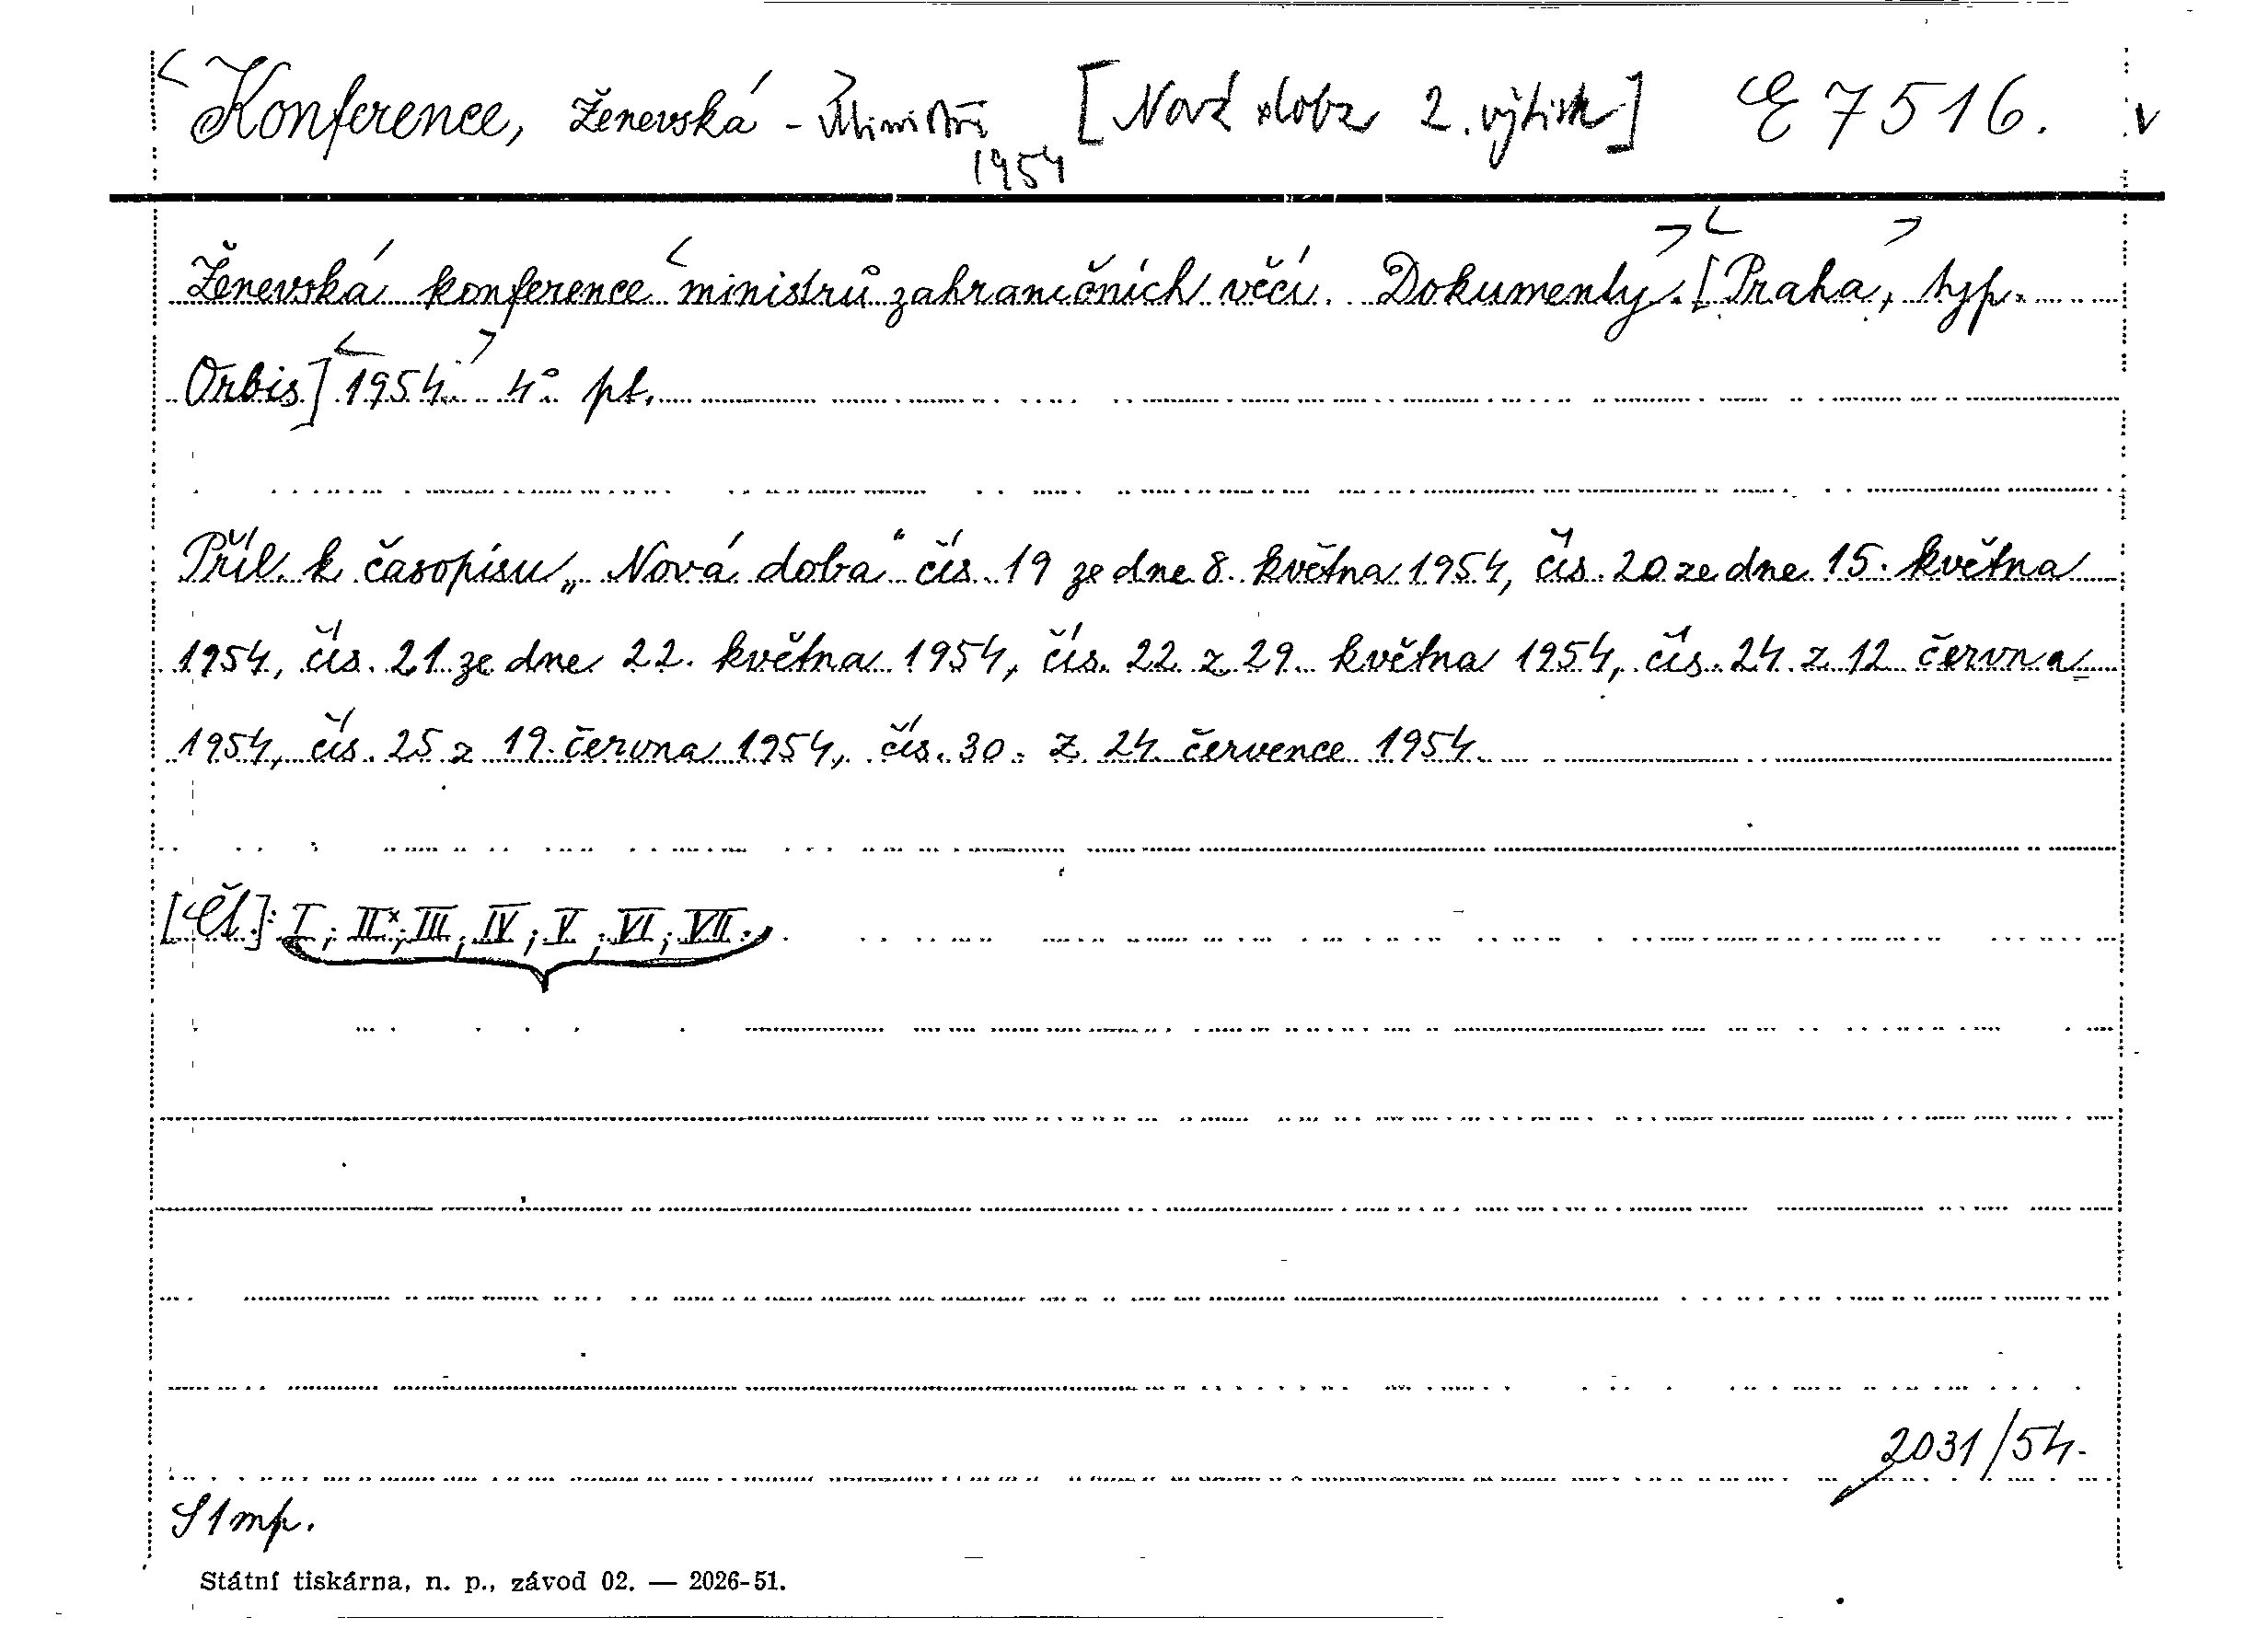 Konference, Ženevská - Ministři [Nová doba 2. výtisk] E 7516.
1954
Ženevská konference ministrů zahraničních věcí. Dokumenty. [Praha, typ.
Orbis] 1954. 4° pt.
Příl. k časopisu „Nová doba“ čís. 19 ze dne 8. května 1954, čís. 20 ze dne 15. května
1954, čís. 21 ze dne 22. května 1954, čís. 22 z 29. května 1954, čís. 24 z 12 června
1954, čís. 25 z 19. června 1954, čís. 30. z 24 července 1954.
[Čl.]: I; II×; III; IV; V; VI; VII.
2031/54.
S1mp.
Státní tiskárna, n. p., závod 02. — 2026-51.